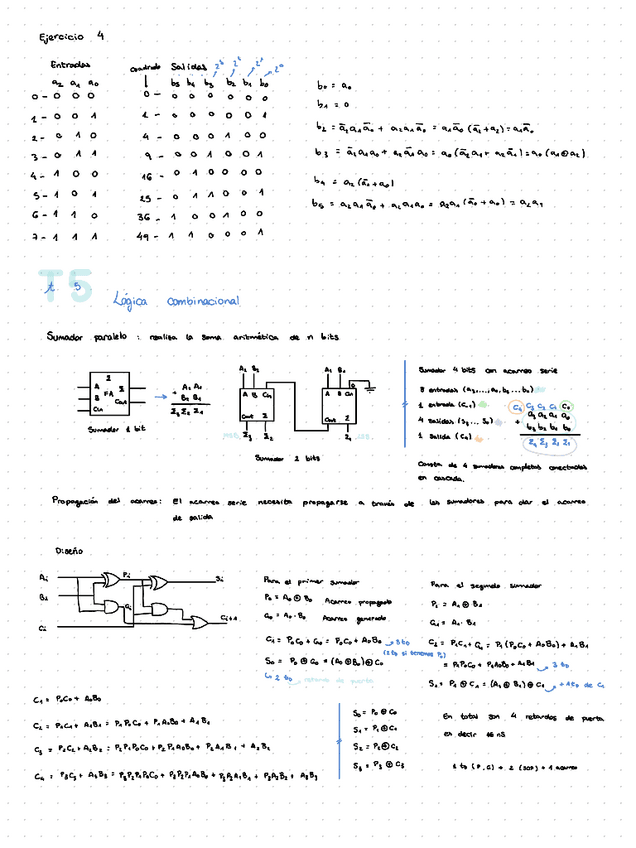 Ejercicio 4
Entradas
a₂ a₁ a₀
0 - 0 0 0
1 - 0 0 1
2 - 0 1 0
3 - 0 1 1
4 - 1 0 0
5 - 1 0 1
6 - 1 1 0
7 - 1 1 1
cuadrado Salidas 2³ 2² 2¹ 2⁰
b₅ b₄ b₃ b₂ b₁ b₀
0 - 0 0 0 0 0 0
1 - 0 0 0 0 0 1
4 - 0 0 0 1 0 0
9 - 0 0 1 0 0 1
16 - 0 1 0 0 0 0
25 - 0 1 1 0 0 1
36 - 1 0 0 1 0 0
49 - 1 1 0 0 0 1
b₀ = a₀
b₁ = 0
b₂ = a̅₂a₁a̅₀ + a₂a₁a̅₀ = a₁a̅₀ (a̅₂+a₂) = a₁a̅₀
b₃ = a̅₂a₁a₀ + a₂a̅₁a₀ = a₀ (a̅₂a₁ + a₂a̅₁) = a₀ (a₁⊕a₂)
b₄ = a₂ (a̅₁+a₀)
b₅ = a₂a₁a̅₀ + a₂a₁a₀ = a₂a₁ (a̅₀+a₀) = a₂a₁
T5
t 5
Lógica combinacional
Sumador paralelo : realiza la suma aritmética de n bits
A Σ
B FA Σ
Cin Cout
Sumador 1 bit
A₂ A₁
+ B₂ B₁
Σ₃ Σ₂ Σ₁
A₂ B₂
A B Cin
Cout Σ
MSB Σ₃ Σ₂
A₁ B₁
A B Cin
0
Cout Σ
Σ₁ LSB
Sumador 2 bits
Sumador 4 bits con acarreo serie
8 entradas (a₃,...,a₀, b₃ ... b₀)
1 entrada (C₀)
4 salidas (S₃ ... S₀)
1 salida (C₄)
C₄ C₃ C₂ C₁ C₀
a₃ a₂ a₁ a₀
+ b₃ b₂ b₁ b₀
Consta de 4 sumadores completos conectados
en cascada.
Propagación del acarreo: El acarreo serie necesita propagarse a través de los sumadores para dar el acarreo
de salida
Diseño
Ai
Bi
Ci
Pi
Gi
Si
Ci+1
Para el primer sumador
P₀ = A₀ ⊕ B₀ Acarreo propagado
G₀ = A₀ · B₀ Acarreo generado
C₁ = P₀C₀ + G₀ = P₀C₀ + A₀B₀ → 3 t₀
(2 t₀ si tenemos P₀)
S₀ = P₀ ⊕ C₀ = (A₀ ⊕ B₀) ⊕ C₀
2 t₀ → retardo de puerta
Para el segundo sumador
P₁ = A₁ ⊕ B₁
G₁ = A₁ · B₁
C₂ = P₁C₁ + G₁ = P₁ (P₀C₀ + A₀B₀) + A₁B₁
= P₁P₀C₀ + P₁A₀B₀ + A₁B₁ → 3 t₀
S₁ = P₁ ⊕ C₁ = (A₁ ⊕ B₁) ⊕ C₁ → +1t₀ de C₁
C₁ = P₀C₀ + A₀B₀
C₂ = P₁C₁ + A₁B₁ = P₁P₀C₀ + P₁A₀B₀ + A₁B₁
C₃ = P₂C₂ + A₂B₂ = P₂P₁P₀C₀ + P₂P₁A₀B₀ + P₂A₁B₁ + A₂B₂
C₄ = P₃C₃ + A₃B₃ = P₃P₂P₁P₀C₀ + P₃P₂P₁A₀B₀ + P₃P₂A₁B₁ + P₃A₂B₂ + A₃B₃
S₀ = P₀ ⊕ C₀
S₁ = P₁ ⊕ C₁
S₂ = P₂ ⊕ C₂
S₃ = P₃ ⊕ C₃
En total son 4 retardos de puerta
es decir 16 nS
1 t₀ (P, G) + 2 (SOP) + 1 acarreo